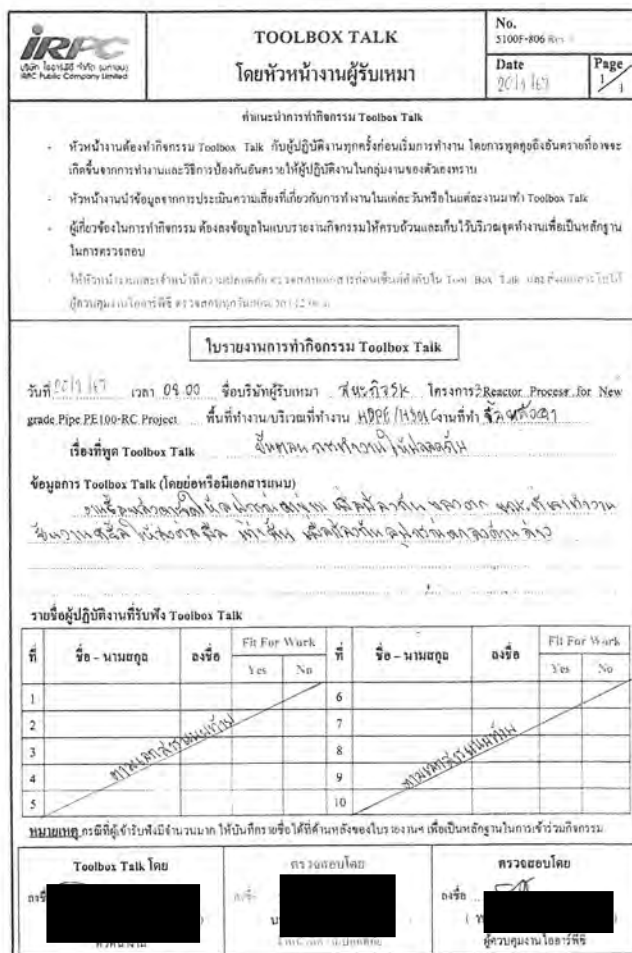 IRPC
บริษัท ไออาร์พีซี จำกัด (มหาชน)
IRPC Public Company Limited
TOOLBOX TALK
โดยหัวหน้างานผู้รับเหมา
No.
5100F-806 Rev
Date
20/9/67
Page
1/1
คำแนะนำการทำกิจกรรม Toolbox Talk
- หัวหน้างานต้องทำกิจกรรม Toolbox Talk กับผู้ปฏิบัติงานทุกครั้งก่อนเริ่มการทำงาน โดยการพูดคุยถึงอันตรายที่อาจจะ
เกิดขึ้นจากการทำงานและวิธีการป้องกันอันตรายให้ผู้ปฏิบัติงานในกลุ่มงานของตัวเองทราบ
- หัวหน้างานนำข้อมูลจากการประเมินความเสี่ยงที่เกี่ยวกับการทำงานในแต่ละวันหรือในแต่ละงานมาทำ Toolbox Talk
- ผู้เกี่ยวข้องในการทำกิจกรรม ต้องลงข้อมูลในแบบรายงานกิจกรรมให้ครบถ้วนและเก็บไว้บริเวณจุดทำงานเพื่อเป็นหลักฐาน
ในการตรวจสอบ
- ให้หัวหน้างานและเจ้าหน้าที่ความปลอดภัย ตรวจสอบเอกสารก่อนเซ็นต์กำกับใน Tool Box Talk
ผู้ควบคุมงานไออาร์พีซี ตรวจสอบทุกวันก่อนเวลา 12.00 น.
ใบรายงานการทำกิจกรรม Toolbox Talk
วันที่ 20/9/67 เวลา 08.00 ชื่อบริษัทผู้รับเหมา โครงการ 3Reactor Process for New
grade Pipe PE100-RC Project พื้นที่ทำงาน/บริเวณที่ทำงาน HDPE งานที่ทำ
เรื่องที่พูด Toolbox Talk ขั้นตอน การทำงานให้ปลอดภัย
ข้อมูลการ Toolbox Talk (โดยย่อหรือมีเอกสารแนบ)
รายชื่อผู้ปฏิบัติงานที่รับฟัง Toolbox Talk
ที่ ชื่อ – นามสกุล ลงชื่อ Fit For Work ที่ ชื่อ – นามสกุล ลงชื่อ Fit For Work
Yes No Yes No
1 6
2 7
3 8
4 9
5 10
ตามเอกสารแนบท้าย ตามเอกสารแนบท้าย
หมายเหตุ กรณีที่ผู้เข้ารับฟังมีจำนวนมาก ให้บันทึกรายชื่อได้ที่ด้านหลังของใบรายงานฯ เพื่อเป็นหลักฐานในการเข้าร่วมกิจกรรม
Toolbox Talk โดย ตรวจสอบโดย ตรวจสอบโดย
ลงชื่อ ลงชื่อ
หัวหน้างาน เจ้าหน้าที่ความปลอดภัย ผู้ควบคุมงานไออาร์พีซี